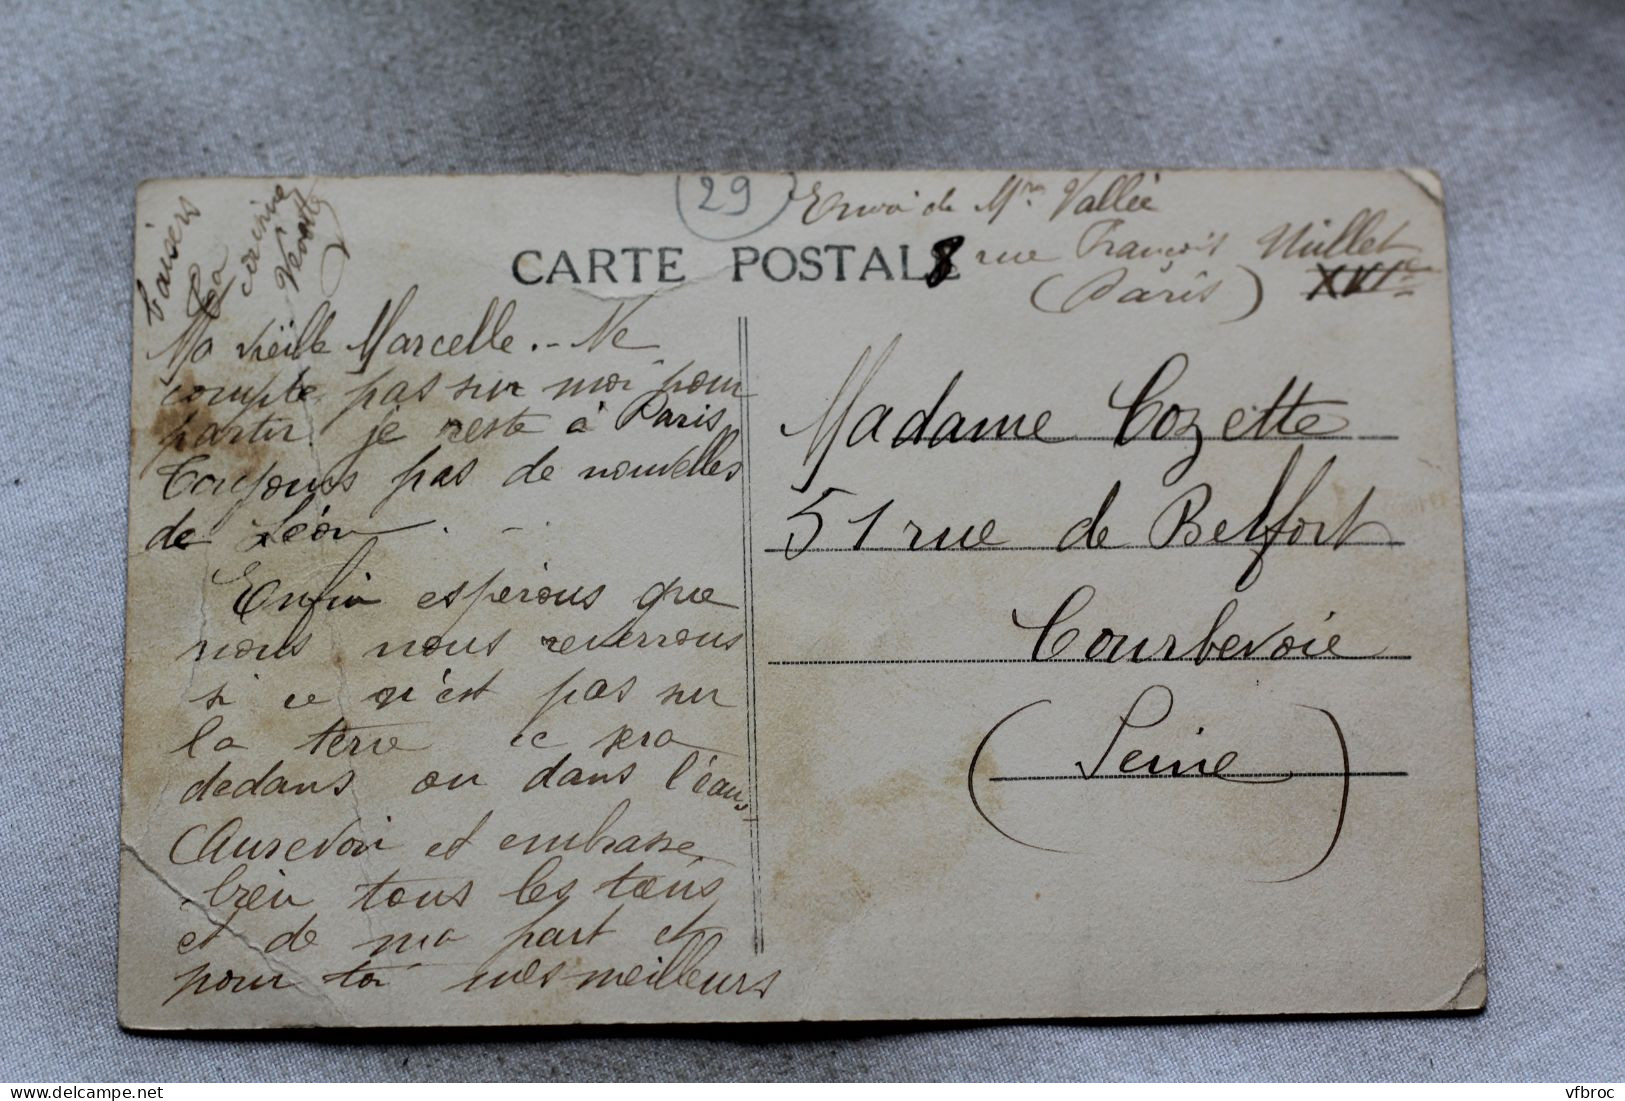 29
Envoi de Mme Vallée
CARTE POSTALE
8 rue François Millet
(Paris) XVIe
baisers
Ta
cousine
Ma vieille Marcelle. - Ne
compte pas sur moi pour
partir. je reste à Paris
Toujours pas de nouvelles
de Léon. -
Enfin espérons que
nous nous reverrons
si ce n'est pas sur
la terre ce sera
dedans ou dans l'eau
Aurevoir et embrasse
bien tous les tiens
et de ma part et
pour toi mes meilleurs
Madame Cozette
51 rue de Belfort
Courbevoie
(Seine)
vfbroc
www.delcampe.net